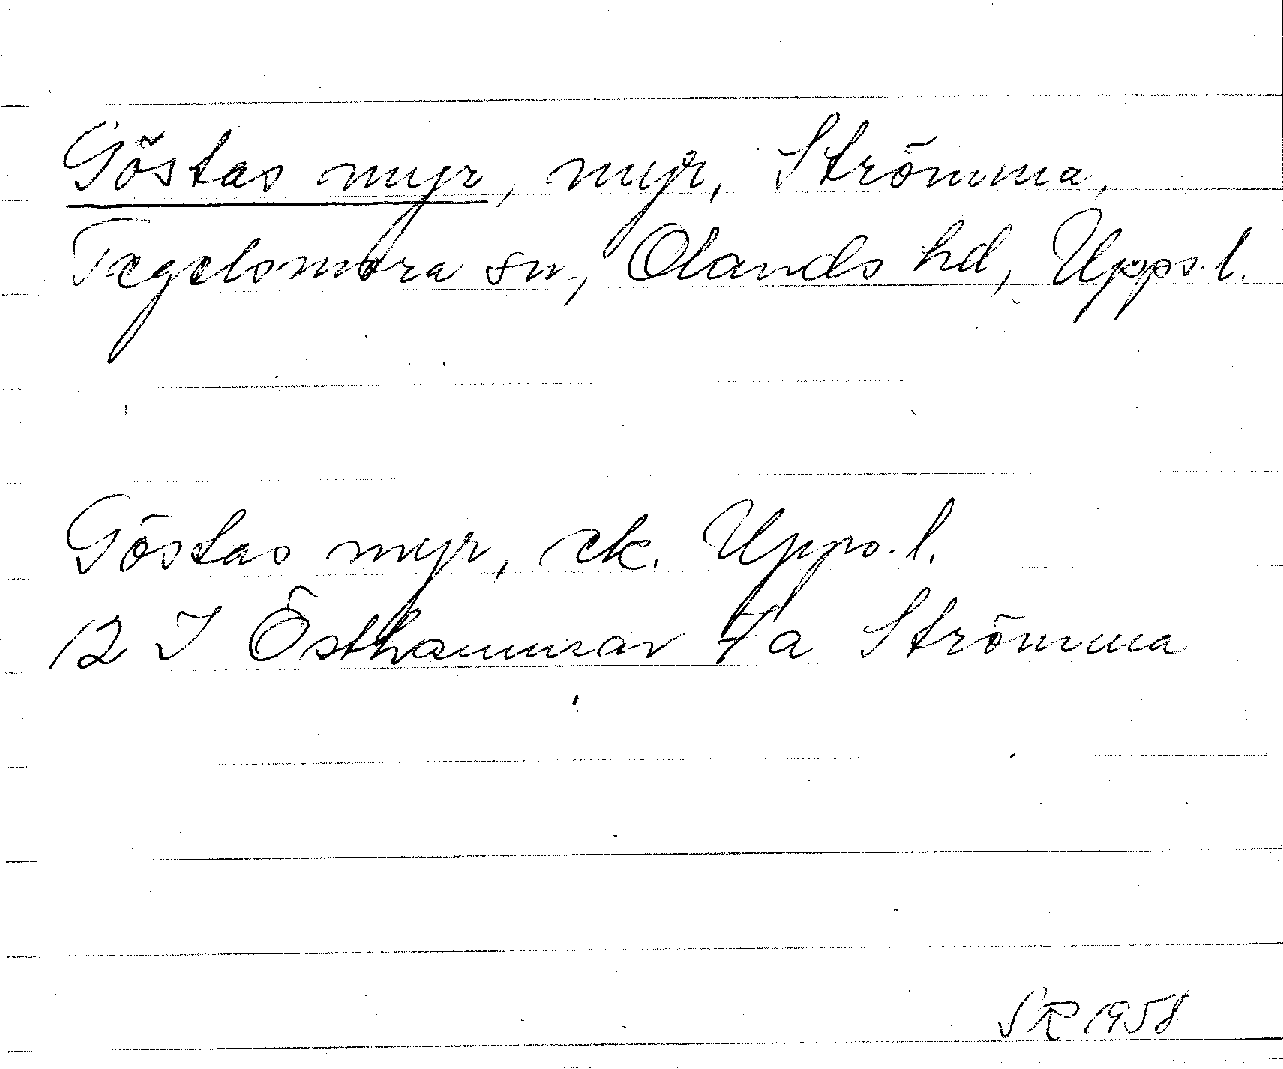 Göstas myr, myr, Strömma,
Tegelsmora sn, Olands hd, Upps. l.
Göstas myr, ek. Upps. l.
12 I Östhammar 7a Strömma
SR 1958